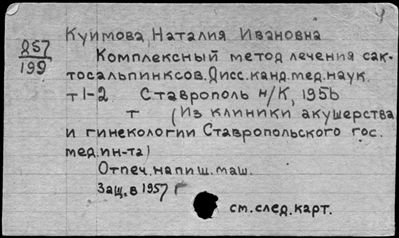 Куимова, Наталия Ивановна
Д57
199
Комплексный метод лечения сак-
тосальпинксов. Дисс. канд. мед. наук.
т 1-2 Ставрополь н/К, 1956
т (Из клиники акушерства
и гинекологии Ставропольского гос.
мед. ин-та)
Отпеч. на пиш. маш.
Защ. в 1957 г
см. след. карт.